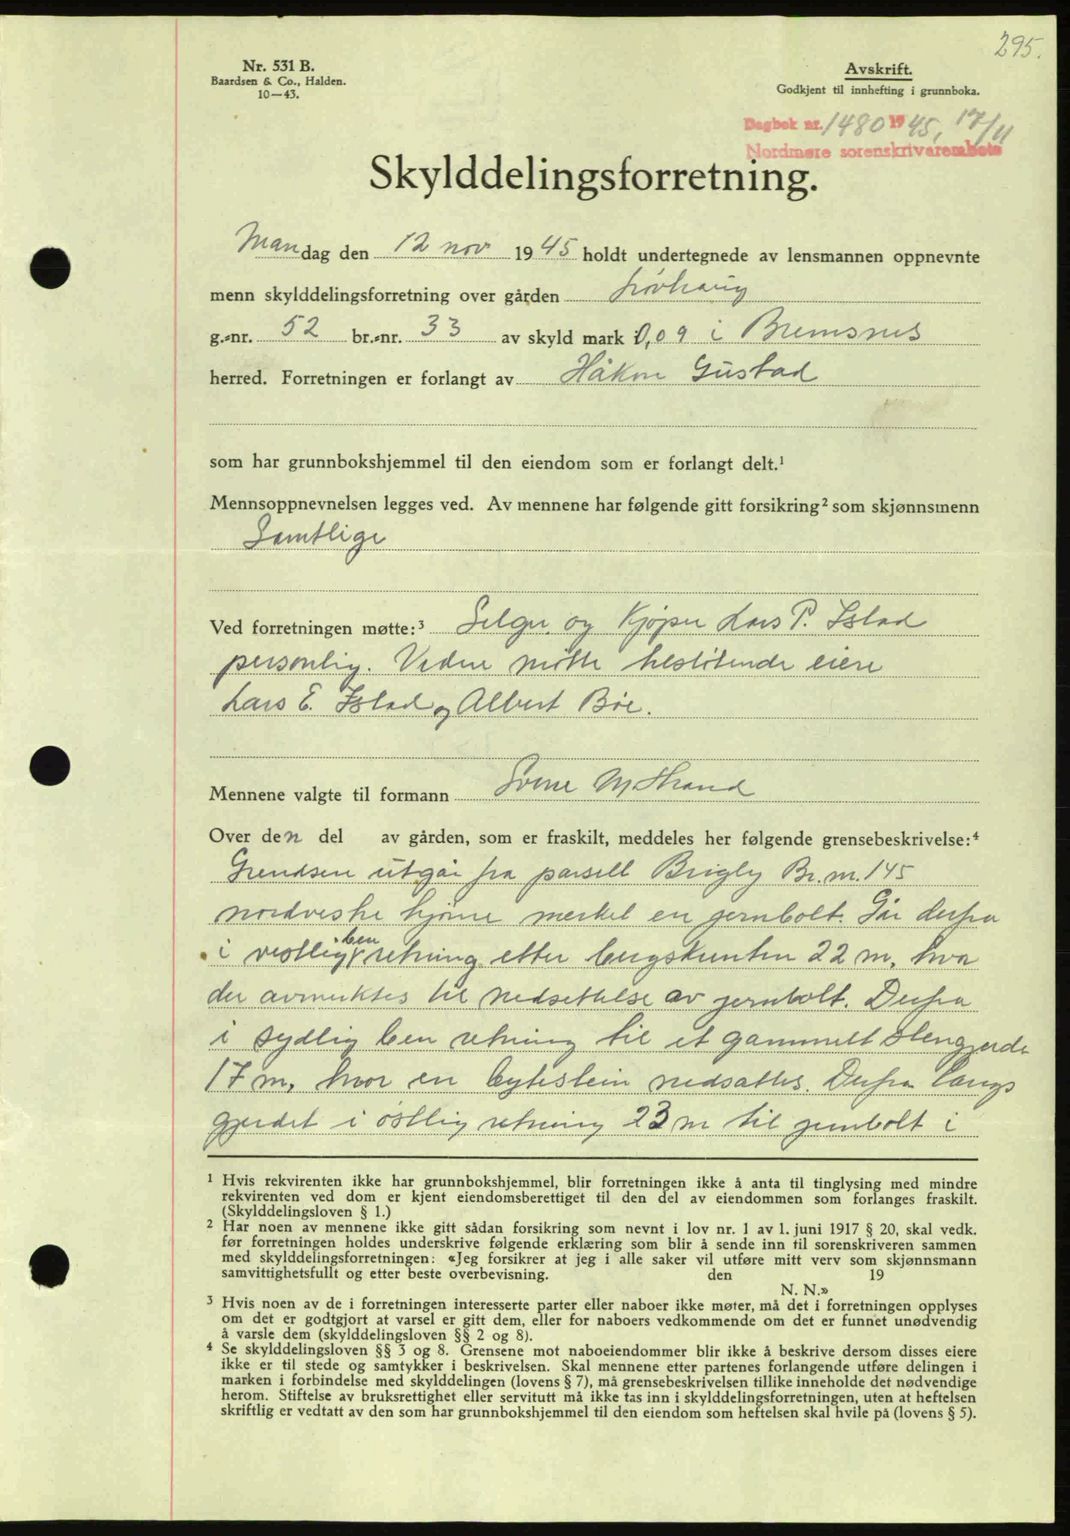 295.
Nr. 531 B.
Baardsen & Co., Halden.
10—43.
Avskrift.
Godkjent til innhefting i grunnboka.
Dagbok nr. 1480 1945, 17/11
Nordmøre sorenskrivarembete
Skylddelingsforretning.
Mandag den 12 nov 1945 holdt undertegnede av lensmannen oppnevnte
menn skylddelingsforretning over gården Løvhaug
g.-nr. 52 br.-nr. 33 av skyld mark 0,09 i Bremsnes
herred. Forretningen er forlangt av Håkon Gustad
som har grunnbokshjemmel til den eiendom som er forlangt delt.¹
Mennsoppnevnelsen legges ved. Av mennene har følgende gitt forsikring² som skjønnsmenn
Samtlige
Ved forretningen møtte:³ Selger og Kjøper Lars P. Istad
personlig. Videre møtte tilstøtende eiere
Lars E. Istad og Albert Bøe.
Mennene valgte til formann Sverre M Strand
Over den del av gården, som er fraskilt, meddeles her følgende grensebeskrivelse:⁴
Grendsen utgår fra parsell Brigly Br.nr. 145
nordvestre hjørne merket en jernbolt. Går derfra
i vestlig ben retning etter bergskanten 22 m, hvor
der avmerktes til nedsettelse av jernbolt. Derfra
i sydlig ben retning til et gammelt stengjerde
17 m, hvor en bytestein nedsattes. Derfra langs
gjerdet i østlig retning 23 m til jernbolt i
¹ Hvis rekvirenten ikke har grunnbokshjemmel, blir forretningen ikke å anta til tinglysing med mindre
rekvirenten ved dom er kjent eiendomsberettiget til den del av eiendommen som forlanges fraskilt.
(Skylddelingsloven § 1.)
² Har noen av mennene ikke gitt sådan forsikring som nevnt i lov nr. 1 av 1. juni 1917 § 20, skal vedk.
før forretningen holdes underskrive følgende erklæring som blir å sende inn til sorenskriveren sammen
med skylddelingsforretningen: «Jeg forsikrer at jeg i alle saker vil utføre mitt verv som skjønnsmann
samvittighetsfullt og etter beste overbevisning. den 19
N. N.»
³ Hvis noen av de i forretningen interesserte parter eller naboer ikke møter, må det i forretningen opplyses
om det er godtgjort at varsel er gitt dem, eller for naboers vedkommende om det er funnet unødvendig
å varsle dem (skylddelingsloven §§ 2 og 8).
⁴ Se skylddelingsloven §§ 3 og 8. Grensene mot naboeiendommer blir ikke å beskrive dersom disses eiere
ikke er til stede og samtykker i beskrivelsen. Skal mennene etter partenes forlangende utføre delingen i
marken i forbindelse med skylddelingen (lovens § 7), må grensebeskrivelsen tillike inneholde det nødvendige
herom. Stiftelse av bruksrettighet eller servitutt må ikke tas inn i skylddelingsforretningen, uten at heftelsen
skriftlig er vedtatt av den som har grunnbokshjemmel til den eiendom som heftelsen skal hvile på (lovens § 5).